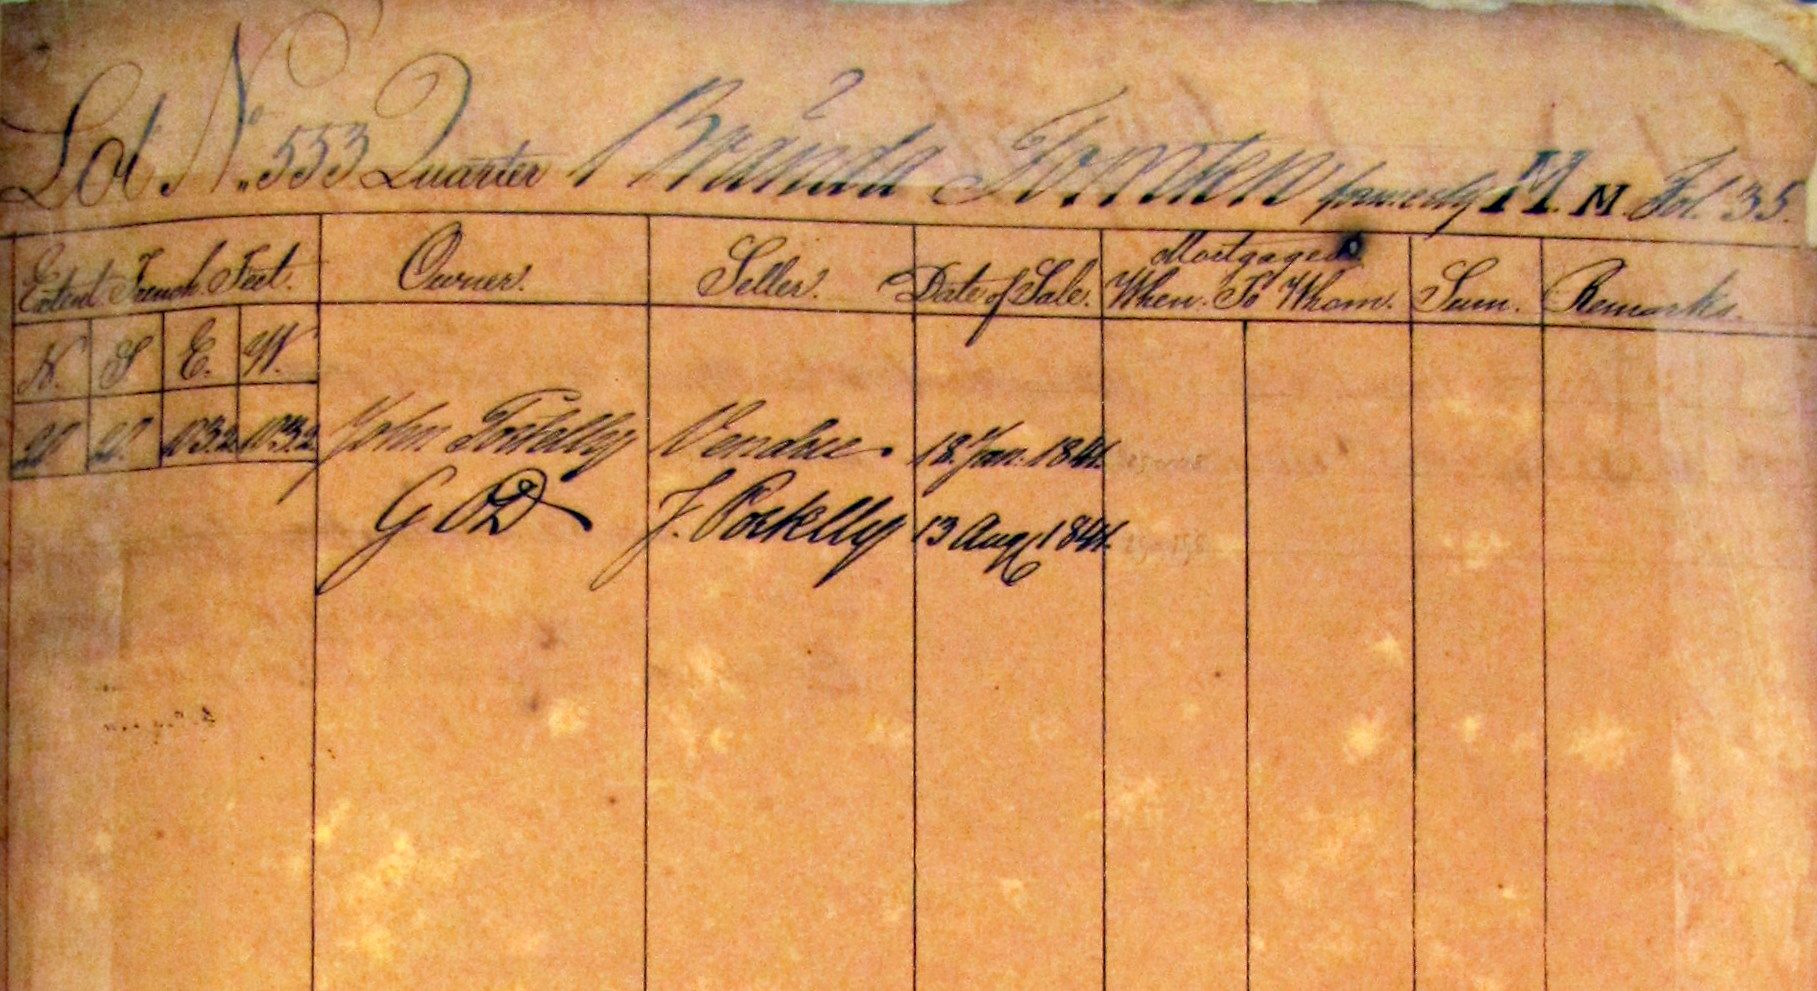 Lot N.º 553 Quarter Brända Tomten formerly M. M. Fol. 35.
Extent French Feet. Owner. Seller. Date of Sale. Mortgaged When. To Whom. Sum. Remarks.
N. S E. W.
John Postelly Vendue. 18. Jan. 1841.
G O D J. Postelly 13 Aug 1841.